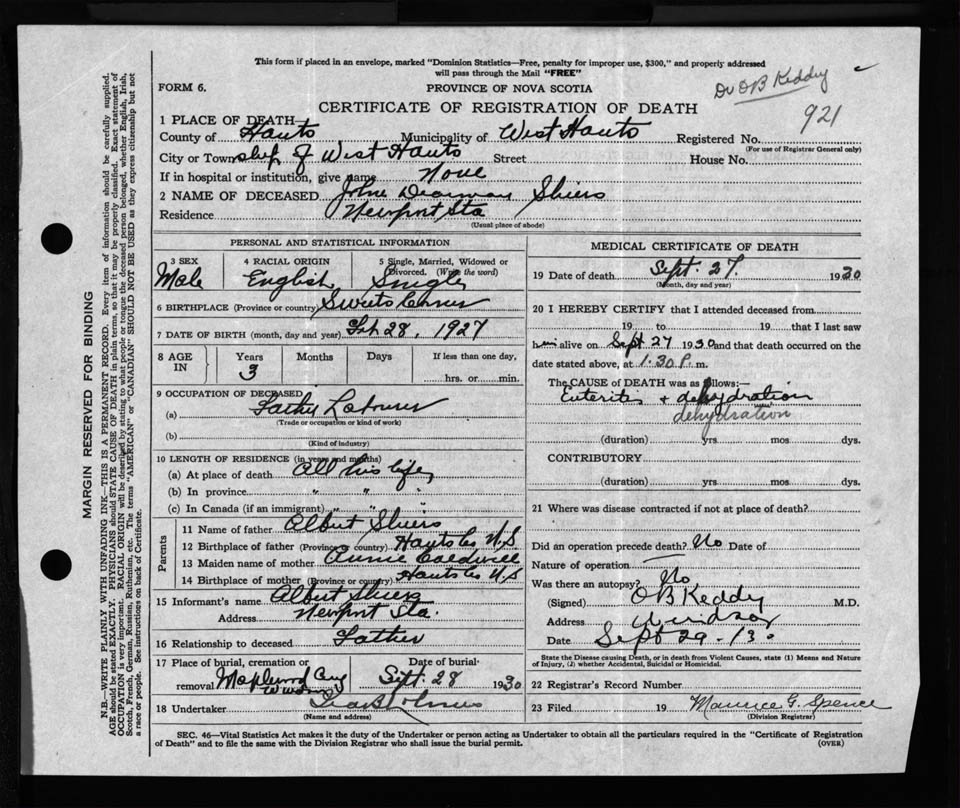 This form if placed in an envelope, marked "Dominion Statistics—Free, penalty for improper use, $300," and properly addressed
will pass through the Mail "FREE"
Dr OB Keddy
FORM 6.
PROVINCE OF NOVA SCOTIA
CERTIFICATE OF REGISTRATION OF DEATH
921
1 PLACE OF DEATH
County of Hants Municipality of West Hants Registered No.
(For use of Registrar General only)
City or Township of West Hants Street House No.
If in hospital or institution, give name None
2 NAME OF DECEASED John Shiers
Residence Newport Sta
(Usual place of abode)
PERSONAL AND STATISTICAL INFORMATION
3 SEX 4 RACIAL ORIGIN 5 Single, Married, Widowed or Divorced. (Write the word)
Male English Single
6 BIRTHPLACE (Province or country) Sweets Corner
7 DATE OF BIRTH (month, day and year) Feb 28, 1927
8 AGE IN Years Months Days If less than one day,
3 hrs. or min.
9 OCCUPATION OF DECEASED
(a) Father Labourer
(Trade or occupation or kind of work)
(b)
(Kind of industry)
10 LENGTH OF RESIDENCE (in years and months)
(a) At place of death All his life
(b) In province " " "
(c) In Canada (if an immigrant) " " "
Parents
11 Name of father Albert Shiers
12 Birthplace of father (Province or country) Hants Co N.S
13 Maiden name of mother Annie Caldwell
14 Birthplace of mother (Province or country) Hants Co N.S
15 Informant's name Albert Shiers
Address Newport Sta.
16 Relationship to deceased Father
17 Place of burial, cremation or removal Maplewood Cmy Windsor
Date of burial Sept. 28 1930
18 Undertaker
(Name and address)
MEDICAL CERTIFICATE OF DEATH
19 Date of death Sept. 27. 1930
(Month, day and year)
20 I HEREBY CERTIFY that I attended deceased from
19 to 19 that I last saw
him alive on Sept 27 1930 and that death occurred on the
date stated above, at 1.30 P. m.
The CAUSE of DEATH was as follows:—
Enteritis + dehydration
dehydration
(duration) yrs mos dys.
CONTRIBUTORY
(duration) yrs mos dys.
21 Where was disease contracted if not at place of death?
Did an operation precede death? No Date of
Nature of operation
Was there an autopsy? No
(Signed) OB Keddy M.D.
Address Windsor
Date Sept 29 - 130
State the Disease causing Death, or in death from Violent Causes, state (1) Means and Nature
of Injury, (2) whether Accidental, Suicidal or Homicidal.
22 Registrar's Record Number
23 Filed 19 Maurice G. Spence
(Division Registrar)
SEC. 46—Vital Statistics Act makes it the duty of the Undertaker or person acting as Undertaker to obtain all the particulars required in the "Certificate of Registration
of Death" and to file the same with the Division Registrar who shall issue the burial permit.
(OVER)
MARGIN RESERVED FOR BINDING
N.B.—WRITE PLAINLY WITH UNFADING INK—THIS IS A PERMANENT RECORD. Every item of information should be carefully supplied.
AGE should be stated EXACTLY. PHYSICIANS should STATE CAUSE OF DEATH in plain terms, so that it may be properly classified. Exact statement of
OCCUPATION is very important. RACIAL ORIGIN will be described by stating to what people or tongue the deceased person belonged, whether English, Irish,
Scotch, French, German, Russian, Ruthenian, etc. The terms "AMERICAN" or "CANADIAN" SHOULD NOT BE USED as they express citizenship but not
a race or people. See instructions on back of Certificate.